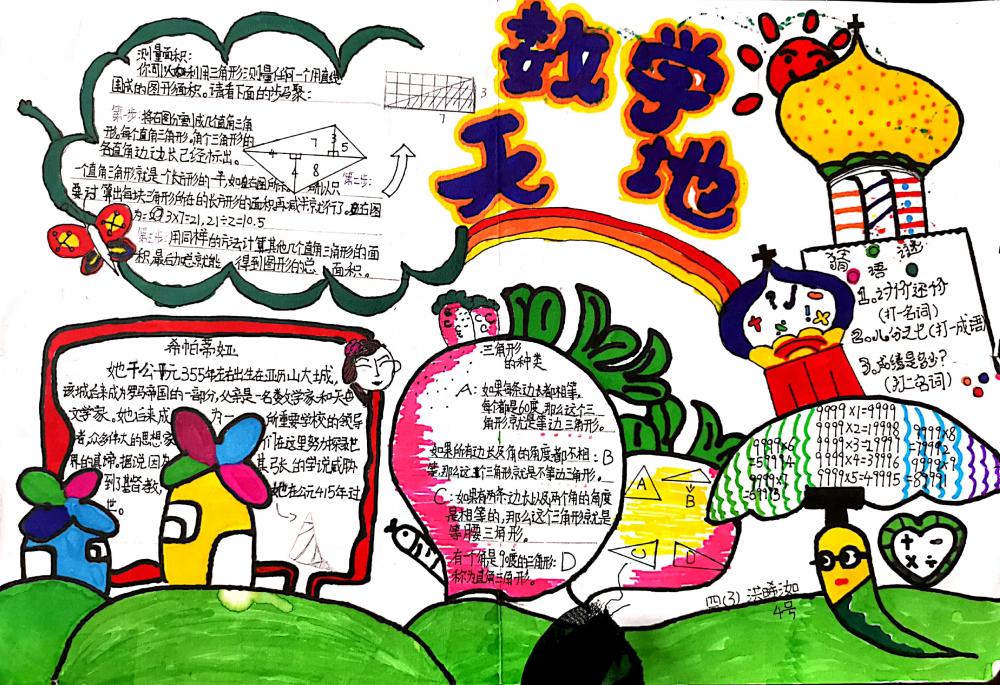 数学
天地
测量面积:
你可以利用三角形测量任何一个用直线
围成的图形面积。请看下面的步骤:
第一步:将右图分割成几个直角三角
形。每个直角三角形。角个三角形的
各直角边边长已经标出。
一个直角三角形就是一个长方形的一半,如右图所
第二步:
要对 算出每块三角形所在的长方形的面积再减半就行了。右图
为:3×7=21,21÷2=10.5
第三步:用同样的方法计算其他几个直角三角形的面
积,最后 就能 得到图形的总 面积。
7
3
5
4
4
8
3
7
希帕蒂娅
她于公元355年左右出生在亚历山大城,
该城后来成为罗马帝国的一部分,父亲是一名数学家和天
文学家。她后来成 为一 所重要学校的领导
者,众多伟大的思想家 们在这里努力探索世
界的真谛。据说,因为 其夸张的学说威胁
到了基督教, 她在公元415年过
世。
三角形
的种类
A:如果每条边长都相等,
每个都是60度,那么这个三
角形就是等边三角形。
如果所有边长及角的角度都不相:B
等,那么这个三角形就是不等边三角形。
C:如果有两条边长以及两个角的角度
是相等的,那么这个三角形就是
等腰三角形。
有一个角是90度的三角形:D
称为直角三角形。
A
B
C
D
猜 谜
语
1.讨价还价
(打一名词)
2.(打一成语)
3.成绩是多少?
(打一名词)
9999×1=9999
9999×2=19998
9999×3=29997
9999×4=39996
9999×5=49995
9999×6
=59994
9999×7
=69993
9999×8
=79992
9999×9
=89991
+ −
× ÷
四(3) 洪晞
4号